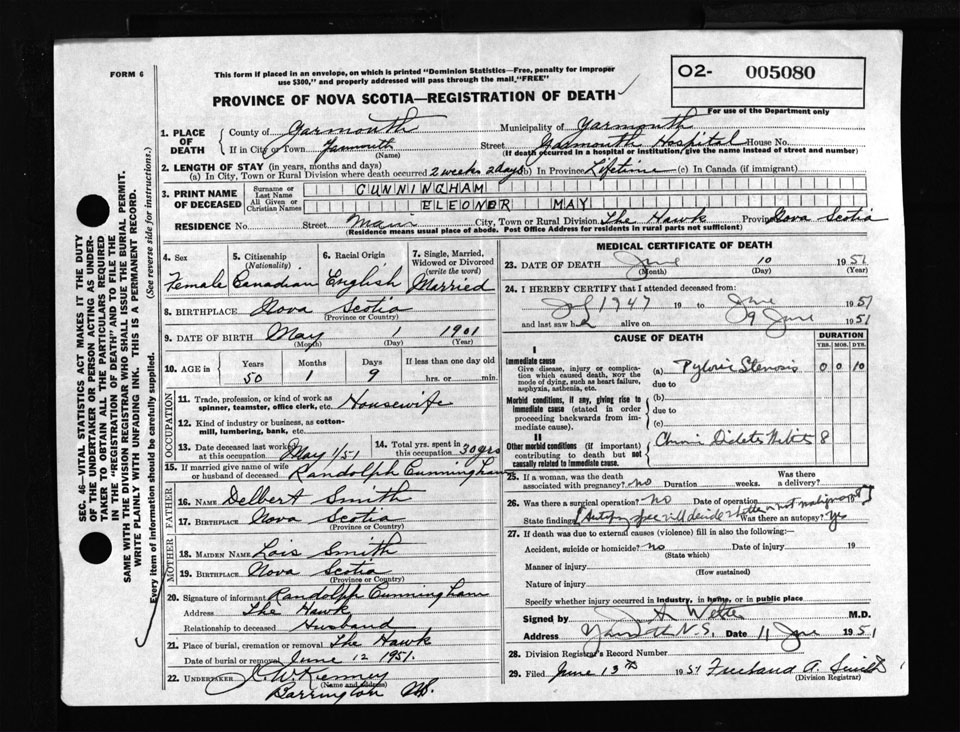 FORM 6
This form if placed in an envelope, on which is printed "Dominion Statistics—Free, penalty for improper
use $300," and properly addressed will pass through the mail, "FREE"
PROVINCE OF NOVA SCOTIA—REGISTRATION OF DEATH
O2- 005080
For use of the Department only
1. PLACE OF DEATH
County of Yarmouth Municipality of Yarmouth
If in City or Town Yarmouth Street Yarmouth Hospital House No.
(Name) (If death occurred in a hospital or institution, give the name instead of street and number)
2. LENGTH OF STAY (in years, months and days)
(a) In City, Town or Rural Division where death occurred 2 weeks 2 days (b) In Province Lifetime (c) In Canada (if immigrant)
3. PRINT NAME OF DECEASED
Surname or Last Name CUNNINGHAM
All Given or Christian Names ELEONER MAY
RESIDENCE No. Street Main City, Town or Rural Division The Hawk Province Nova Scotia
(Residence means usual place of abode. Post Office Address for residents in rural parts not sufficient)
4. Sex
Female
5. Citizenship (Nationality)
Canadian
6. Racial Origin
English
7. Single, Married, Widowed or Divorced (write the word)
Married
8. BIRTHPLACE Nova Scotia
(Province or Country)
9. DATE OF BIRTH May 1 1901
(Month) (Day) (Year)
10. AGE in Years Months Days If less than one day old
50 1 9 hrs. or min.
OCCUPATION
11. Trade, profession, or kind of work as
spinner, teamster, office clerk, etc. Housewife
12. Kind of industry or business, as cotton-
mill, lumbering, bank, etc.
13. Date deceased last worked at this occupation May 1/51
14. Total yrs. spent in this occupation 30 yrs
15. If married give name of wife
or husband of deceased Randolph Cunningham
FATHER
16. NAME Delbert Smith
17. BIRTHPLACE Nova Scotia
(Province or Country)
MOTHER
18. MAIDEN NAME Lois Smith
19. BIRTHPLACE Nova Scotia
(Province or Country)
20. Signature of informant Randolph Cunningham
Address The Hawk
Relationship to deceased Husband
21. Place of burial, cremation or removal The Hawk
Date of burial or removal June 12 1951.
22. UNDERTAKER J. W. Kenney
(Name and address)
Barrington
MEDICAL CERTIFICATE OF DEATH
23. DATE OF DEATH June 10 1951
(Month) (Day) (Year)
24. I HEREBY CERTIFY that I attended deceased from:
1947 19 to June 1951
and last saw h alive on 9 June 1951
CAUSE OF DEATH
DURATION
YRS. MOS. DYS.
I
Immediate cause
Give disease, injury or complica-
tion which caused death, NOT the
mode of dying, such as heart failure,
asphyxia, asthenia, etc.
(a) Pyloric Stenosis 0 0 10
due to
Morbid conditions, if any, giving rise to
immediate cause (stated in order
proceeding backwards from im-
mediate cause).
(b)
due to
(c)
II
Other morbid conditions (if important)
contributing to death but not
causally related to immediate cause.
8
25. If a woman, was the death
associated with pregnancy? no Duration weeks. Was there a delivery?
26. Was there a surgical operation? No Date of operation
State findings Was there an autopsy? Yes
27. If death was due to external causes (violence) fill in also the following:—
Accident, suicide or homicide? no Date of injury 19
(State which)
Manner of injury
(How sustained)
Nature of injury
Specify whether injury occurred in industry, in home, or in public place
Signed by M.D.
Address N.S. Date 11 June 1951
28. Division Registrar's Record Number
29. Filed June 13th 1951
(Division Registrar)
SEC. 46—VITAL STATISTICS ACT MAKES IT THE DUTY
OF THE UNDERTAKER OR PERSON ACTING AS UNDER-
TAKER TO OBTAIN ALL THE PARTICULARS REQUIRED
IN THE "REGISTRATION OF DEATH" AND TO FILE THE
SAME WITH THE DIVISION REGISTRAR WHO SHALL ISSUE THE BURIAL PERMIT.
WRITE PLAINLY WITH UNFADING INK. THIS IS A PERMANENT RECORD.
Every item of information should be carefully supplied. (See reverse side for instructions.)